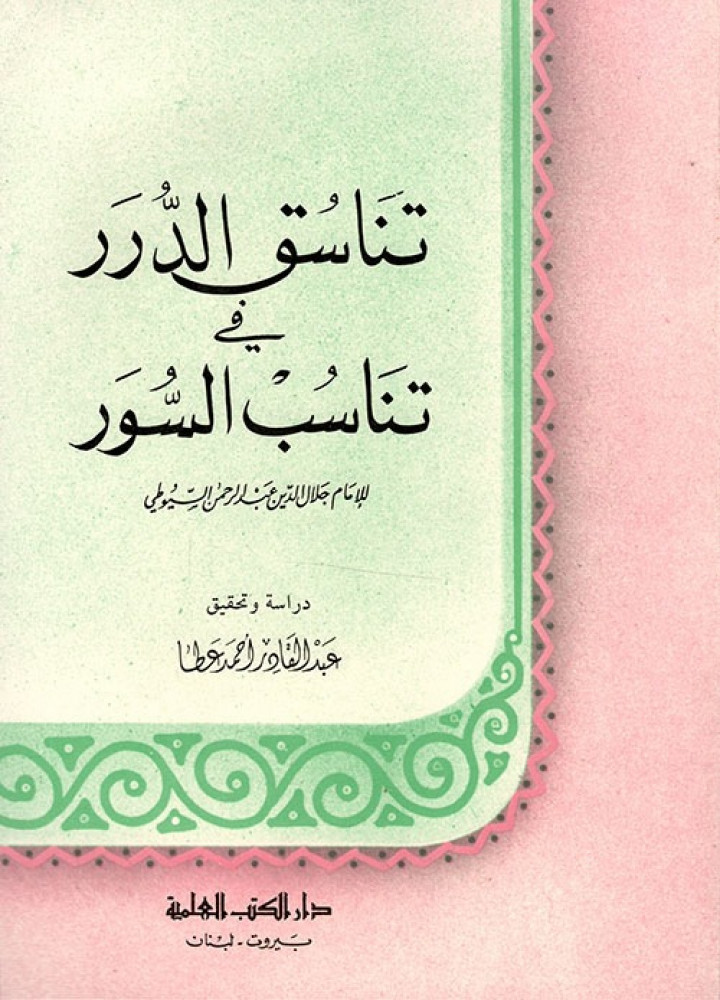 تَنَاسُق الدُّرَر
في
تَنَاسُبْ السُّوَر
للإمَام جَلال الدّين عَبْد الرحمٰن السّيُوطي
دراسة وتحقيق
عَبْد القَادِر أحمَد عَطا
دار الكتب العلمية
بَيروت - لبْنان